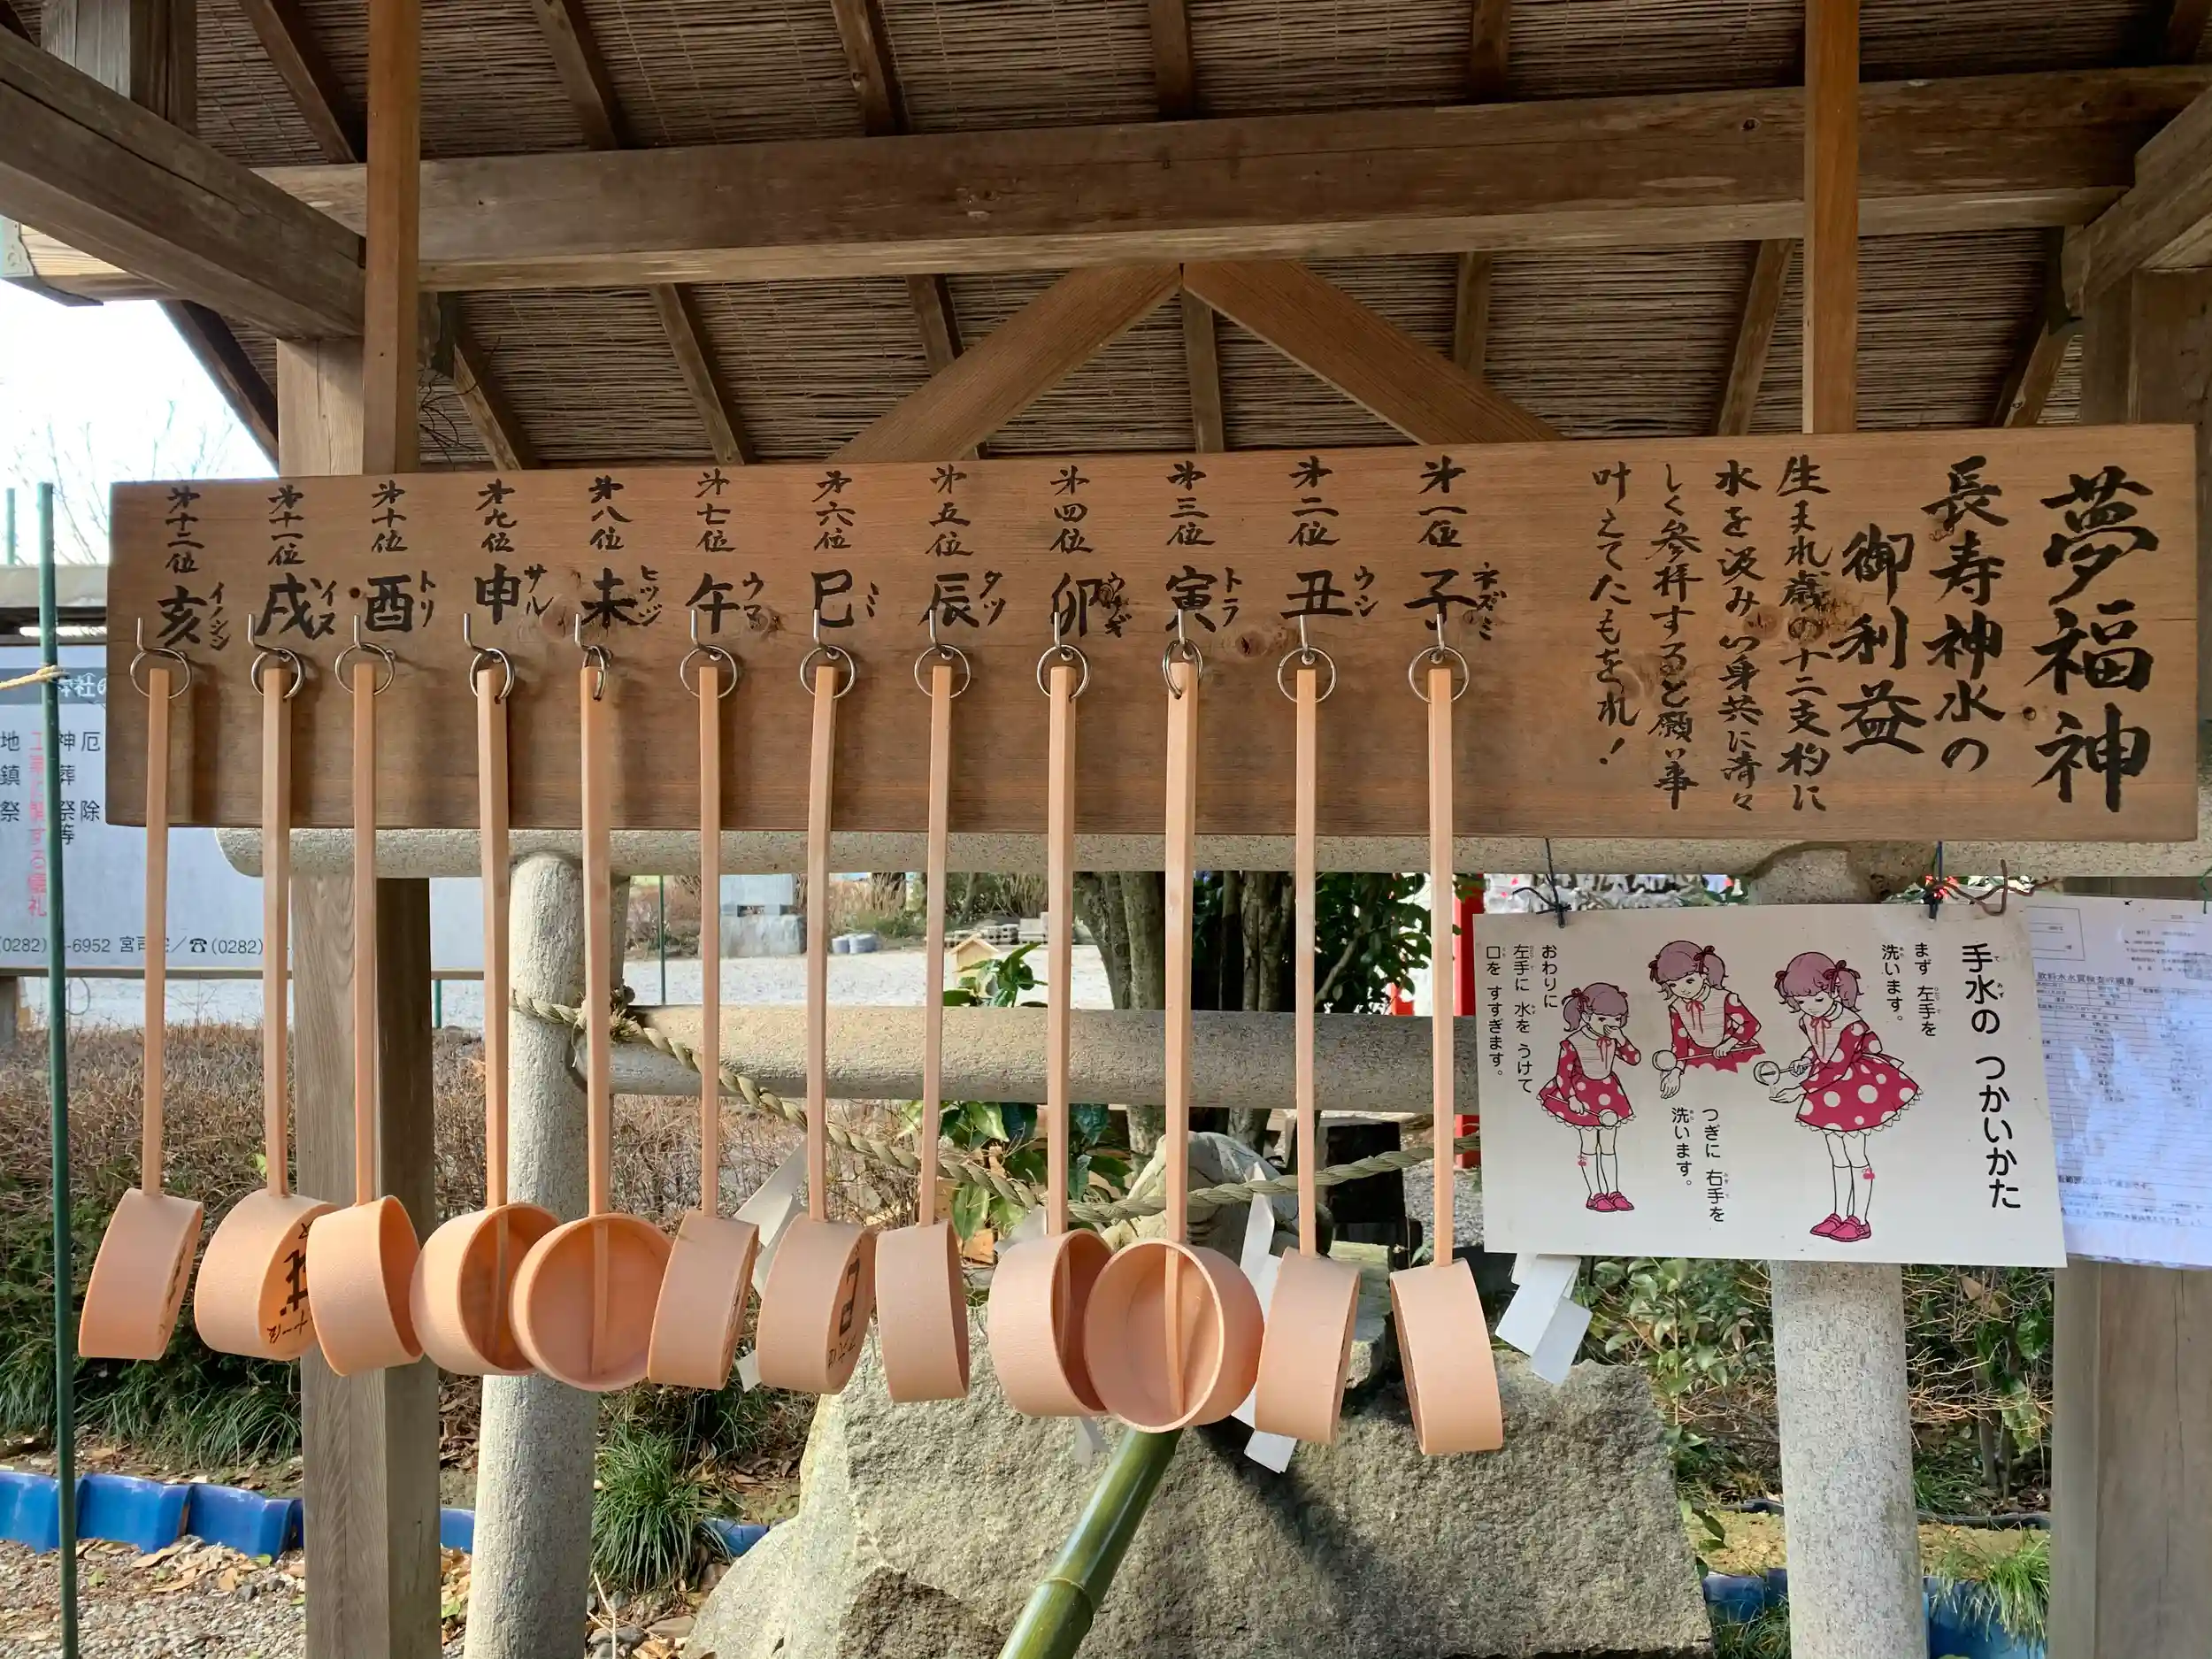 夢福神
長寿神水の
御利益
生まれ歳の十二支杓に
水を汲み心身共に清々
しく参拝すると願い事
叶えてたもをれ！
第一位 子 ネズミ
第二位 丑 ウシ
第三位 寅 トラ
第四位 卯 ウサギ
第五位 辰 タツ
第六位 巳 ミ
第七位 午 ウマ
第八位 未 ヒツジ
第九位 申 サル
第十位 酉 トリ
第十一位 戌 イヌ
第十二位 亥 イノシシ
手水の つかいかた
まず 左手を
洗います。
つぎに 右手を
洗います。
おわりに
左手に 水を うけて
口を すすぎます。
厄除
神葬祭等
地鎮祭